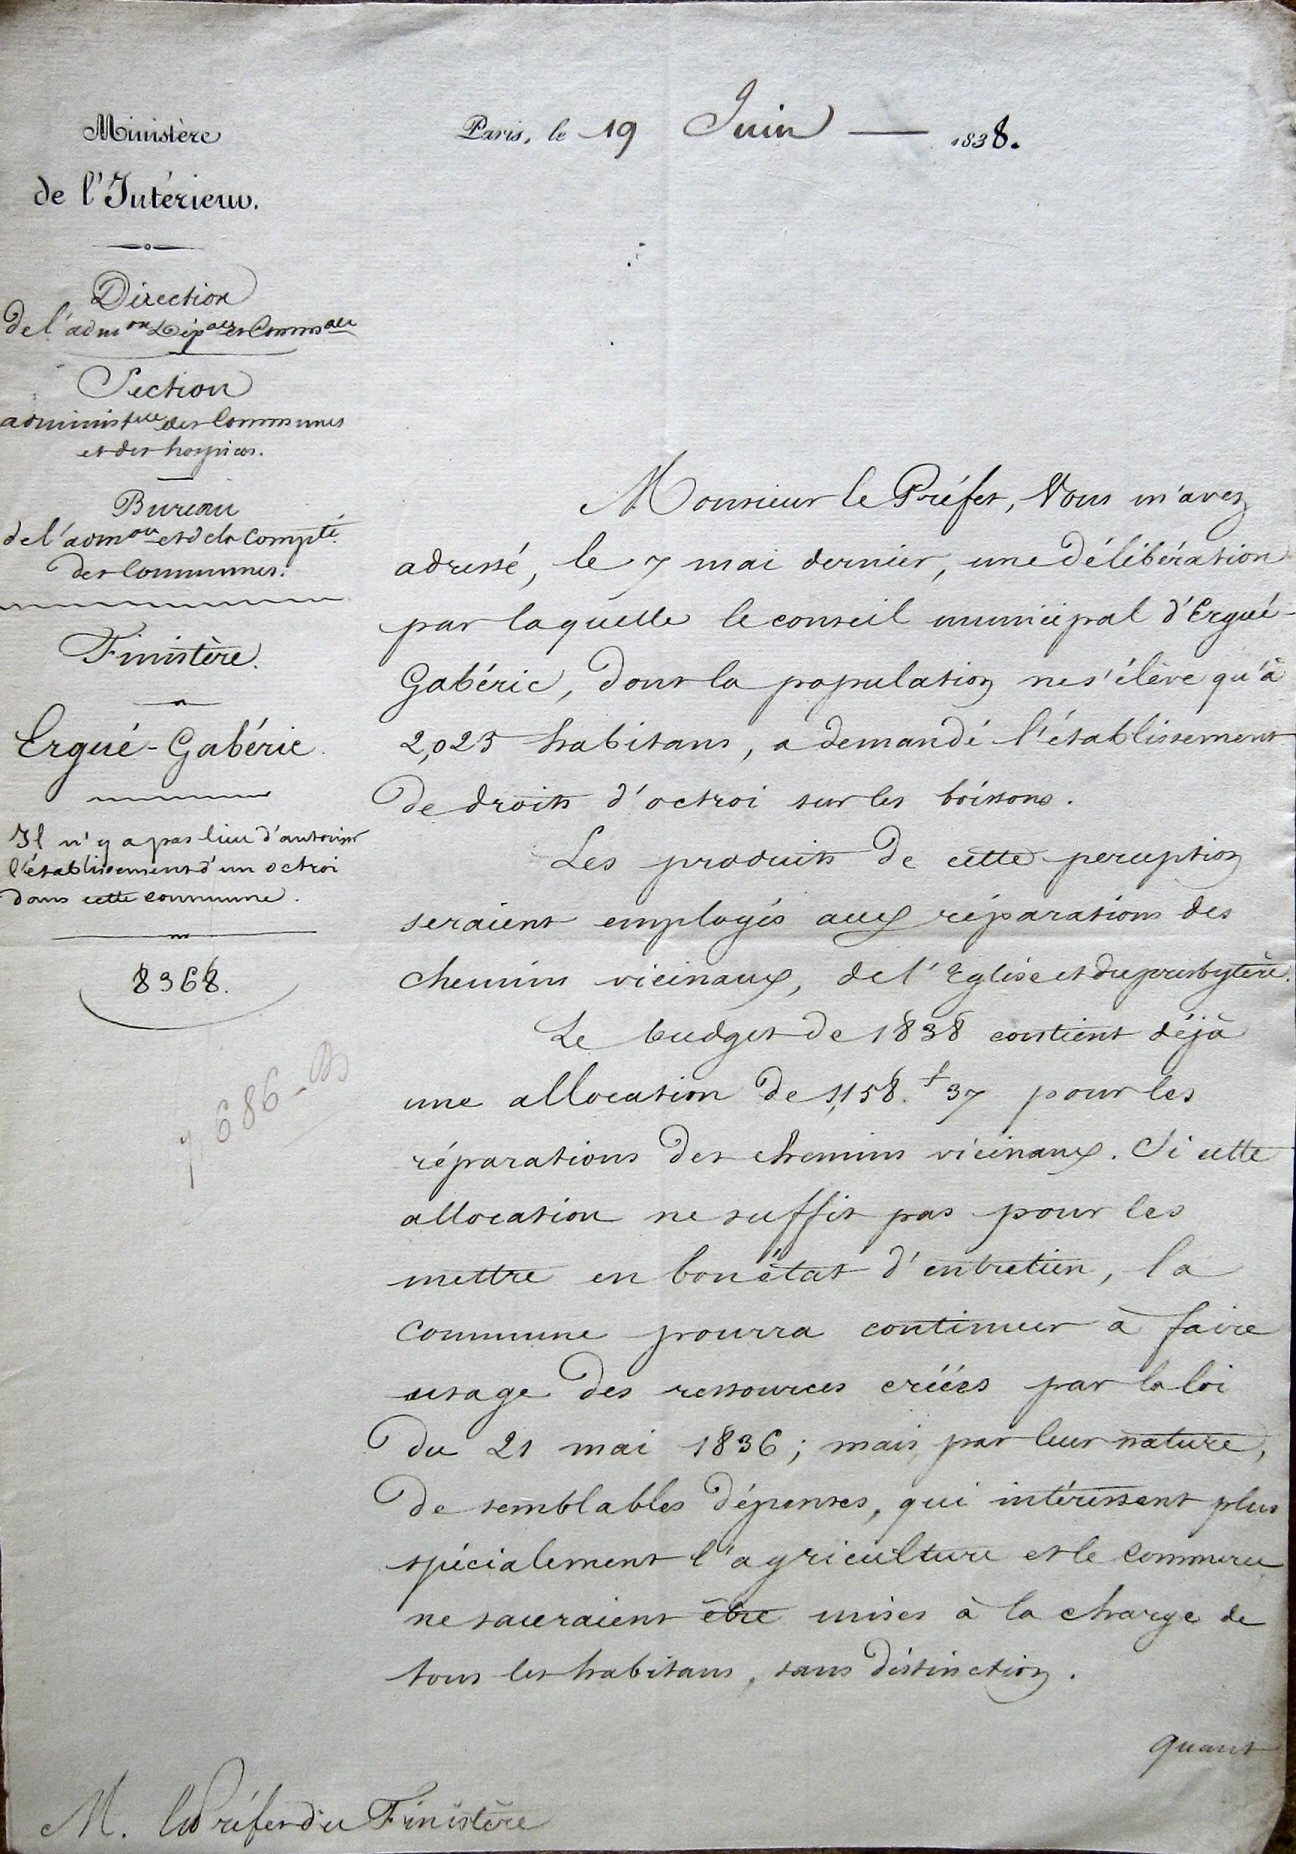 Ministère
de l'Intérieur.
Direction
de l'adm.on Dép.ale et Comm.ale
Section
administ.ive des Communes
et des hospices.
Bureau
de l'adm.on et de la Compté
des Communes.
Finistère.
Ergué-Gabéric.
Il n'y a pas lieu d'autoriser
l'établissement d'un octroi
dans cette commune.
8368.
Paris, le 19 Juin 1838.
Monsieur le Préfet, Vous m'avez
adressé, le 7 mai dernier, une délibération
par laquelle le conseil municipal d'Ergué-
Gabéric, dont la population ne s'élève qu'à
2,025 habitans, a demandé l'établissement
de droits d'octroi sur les boissons.
Les produits de cette perception
seraient employés aux réparations des
chemins vicinaux, de l'Eglise et du presbytère.
Le budget de 1838 contient déjà
une allocation de 1,158.f 37 pour les
réparations des chemins vicinaux. Si cette
allocation ne suffit pas pour les
mettre en bon état d'entretien, la
commune pourra continuer à faire
usage des ressources créées par la loi
du 21 mai 1836; mais, par leur nature,
de semblables dépenses, qui intéressent plus
spécialement l'agriculture et le commerce
ne sauraient être mises à la charge de
tous les habitans, sans distinction.
quant
M. le Préfet du Finistère